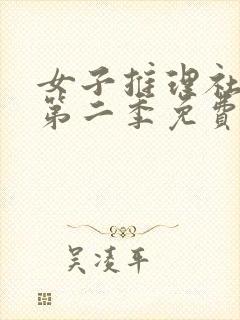 女子推理社
第二季免費
吴凌平